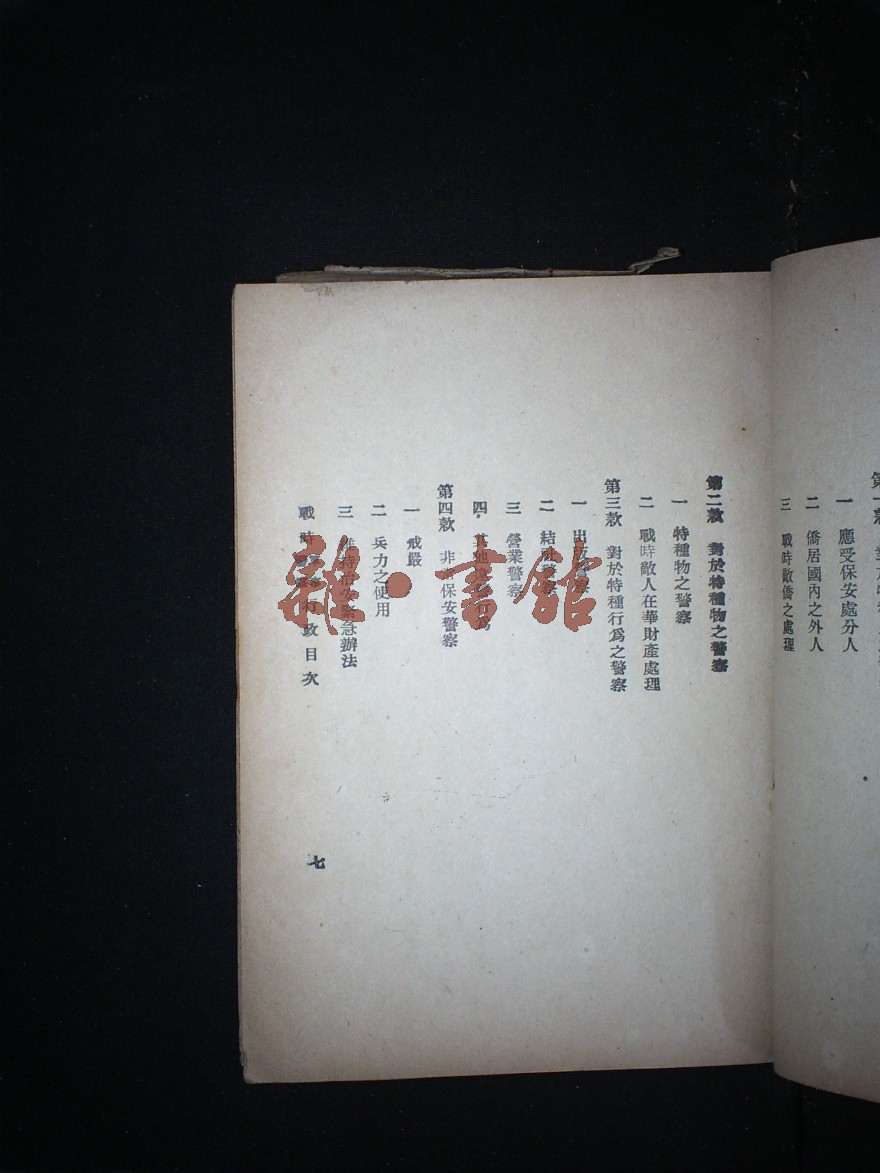 第一款
一 應受保安處分人
二 僑居國內之外人
三 戰時敵僑之處理
第二款 對於特種物之警察
一 特種物之警察
二 戰時敵人在華財產處理
第三款 對於特種行爲之警察
一 出版警察
二 結社警察
三 營業警察
四 其他
第四款 非常保安警察
一 戒嚴
二 兵力之使用
三 維持治安緊急辦法
戰時行政目次
七
雜·書館